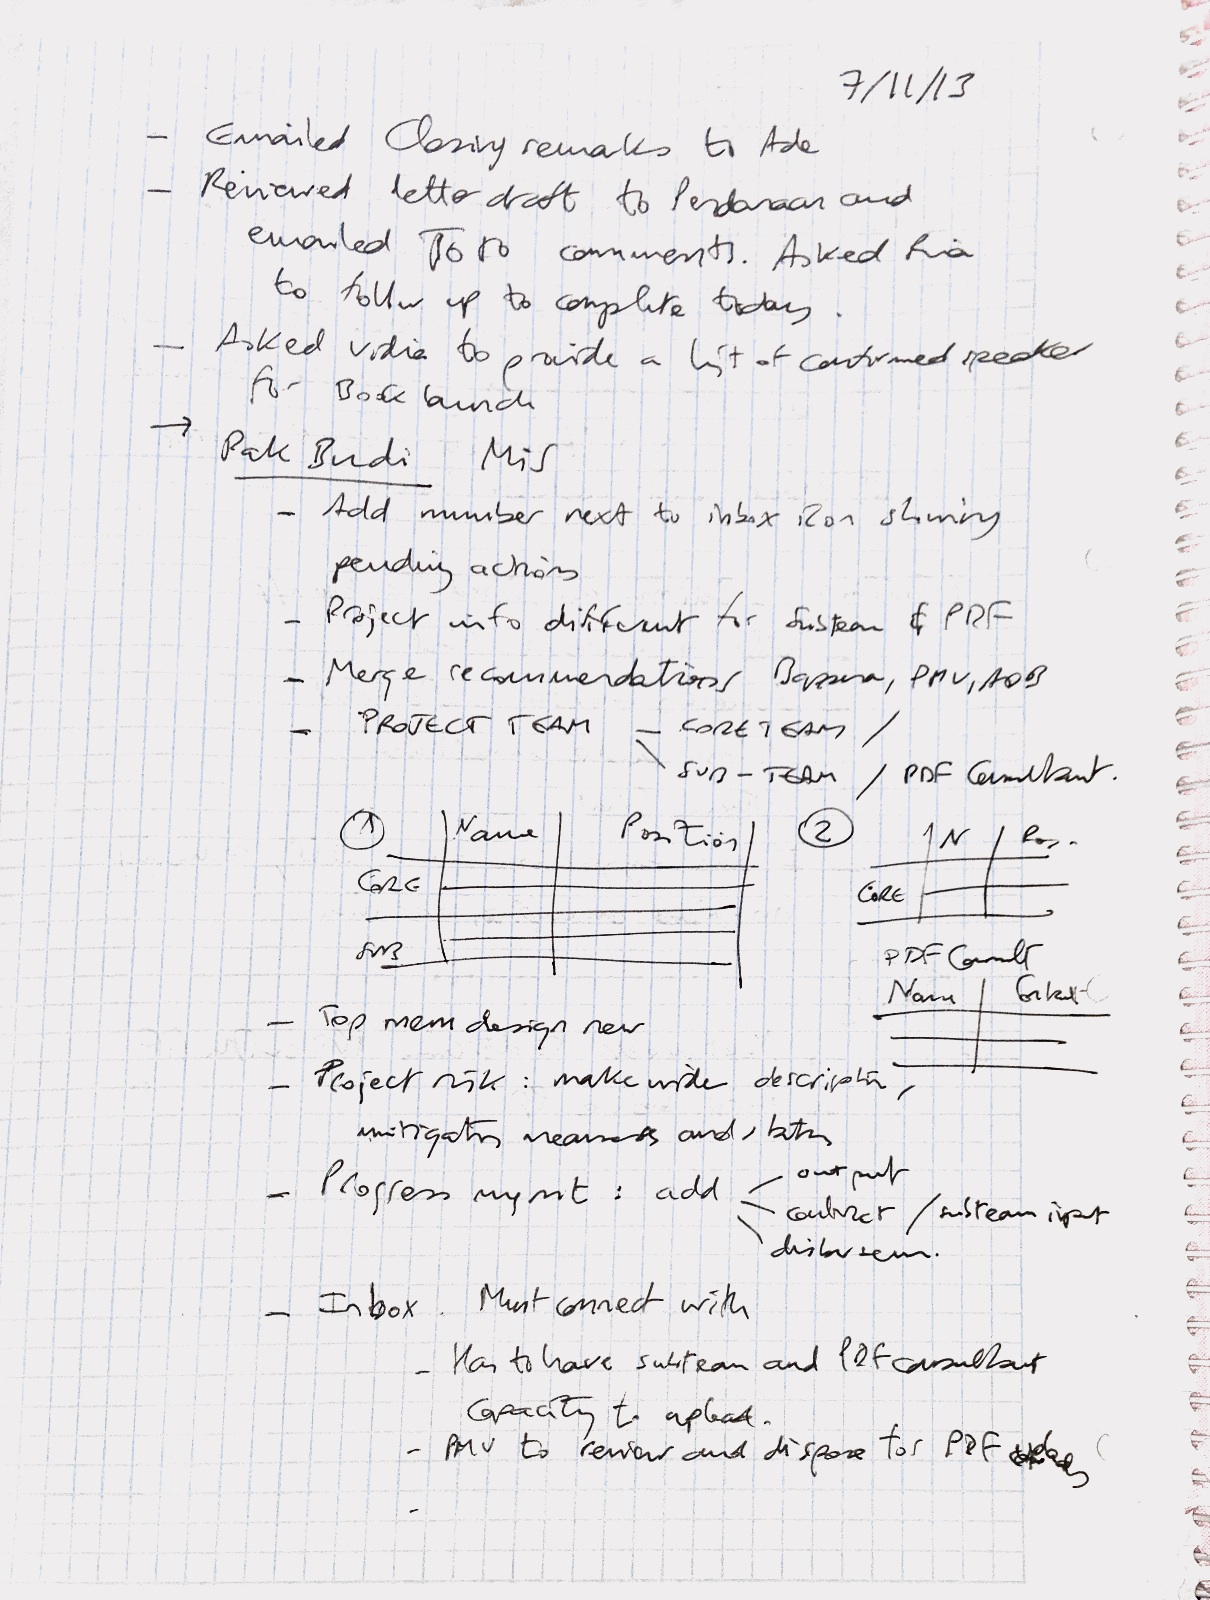 7/11/13
- Emailed Closing remarks to Ade
- Reviewed letter draft to and
emailed comments. Asked Ria
to follow up to complete today.
- Asked Vidia to provide a list of confirmed speaker
for Book launch
→ Pak Budi MIS
- Add number next to inbox icon showing
pending actions
- Project info different for subteam & PDF
- Merge recommendations Bappenas, PMU, ADB
- PROJECT TEAM - CORE TEAM /
SUB-TEAM / PDF Consultant.
① Name Position ② N Pos.
CORE CORE
SUB PDF Consult
Name
- Top menu design new
- Project risk: make wider description,
mitigation measures and
- Progress mgmt: add output
contract / subteam input
disbursem.
- Inbox. Must connect with
- Has to have subteam and PDF consultant
capacity to upload.
- PMU to review and dispose for PDF
-